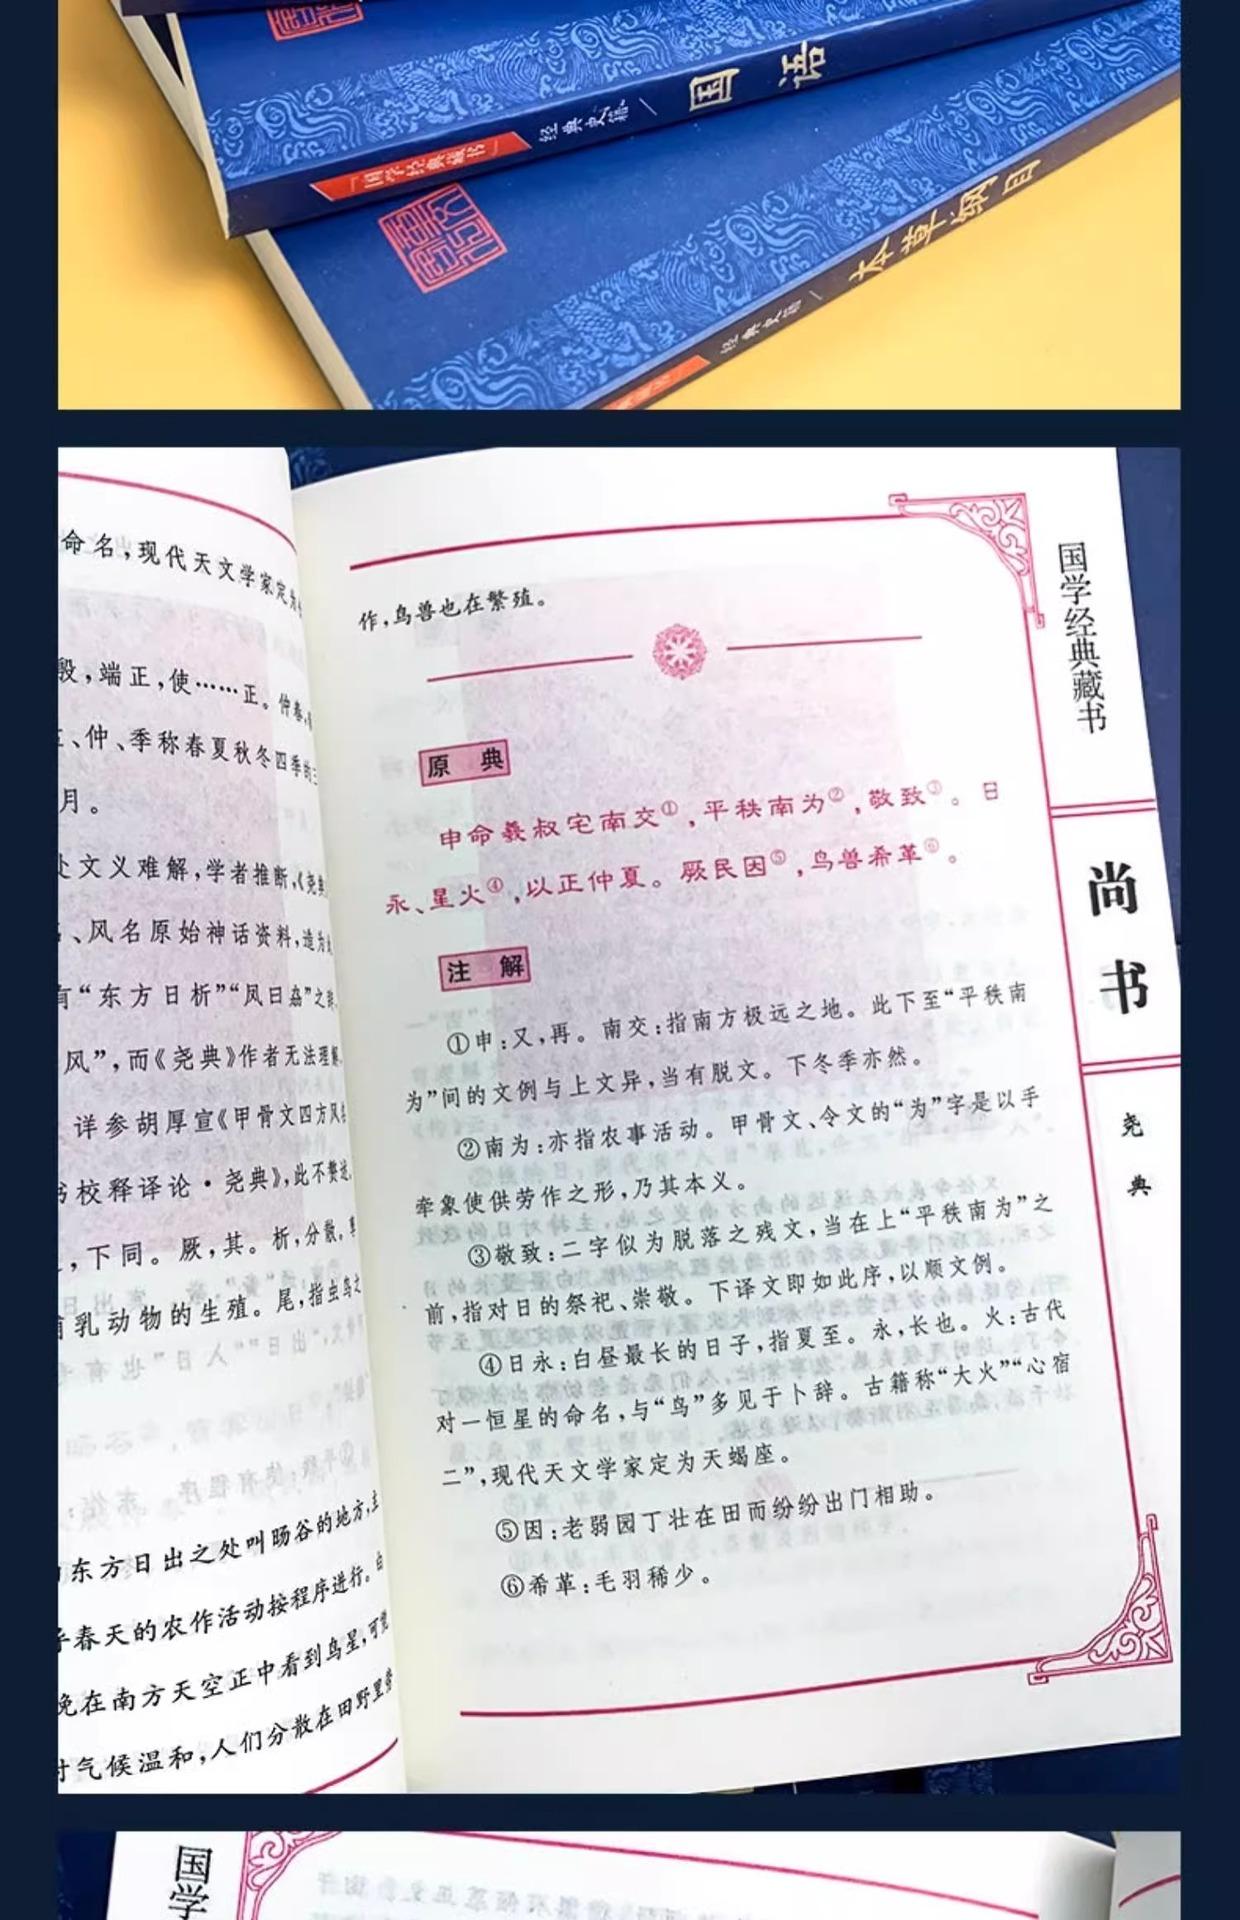 国语
经典史籍 /
「国学经典藏书」
本草纲目
经典史籍 /
命名,现代天文学家定为
殷,端正,使……正。仲春,
、仲、季称春夏秋冬四季的三
月。
处文义难解,学者推断,《尧典
、风名原始神话资料,造为
有“东方日析”“风曰劦”之
风”,而《尧典》作者无法理解
详参胡厚宣《甲骨文四方风
书校释译论·尧典》,此不赘述
,下同。厥,其。析,分散。
乳动物的生殖。尾,指虫鸟之
东方日出之处叫旸谷的地方,主
春天的农作活动按程序进行。白
晚在南方天空正中看到鸟星,可
时气候温和,人们分散在田野里
作,鸟兽也在繁殖。
原典
申命羲叔宅南交①,平秩南为②,敬致③。日
永、星火④,以正仲夏。厥民因⑤,鸟兽希革⑥。
注解
①申:又,再。南交:指南方极远之地。此下至“平秩南
为”间的文例与上文异,当有脱文。下冬季亦然。
②南为:亦指农事活动。甲骨文、令文的“为”字是以手
牵象使供劳作之形,乃其本义。
③敬致:二字似为脱落之残文,当在上“平秩南为”之
前,指对日的祭祀、崇敬。下译文即如此序,以顺文例。
④日永:白昼最长的日子,指夏至。永,长也。火:古代
对一恒星的命名,与“鸟”多见于卜辞。古籍称“大火”“心宿
二”,现代天文学家定为天蝎座。
⑤因:老弱园丁壮在田而纷纷出门相助。
⑥希革:毛羽稀少。
国学经典藏书
尚书
尧典
国学